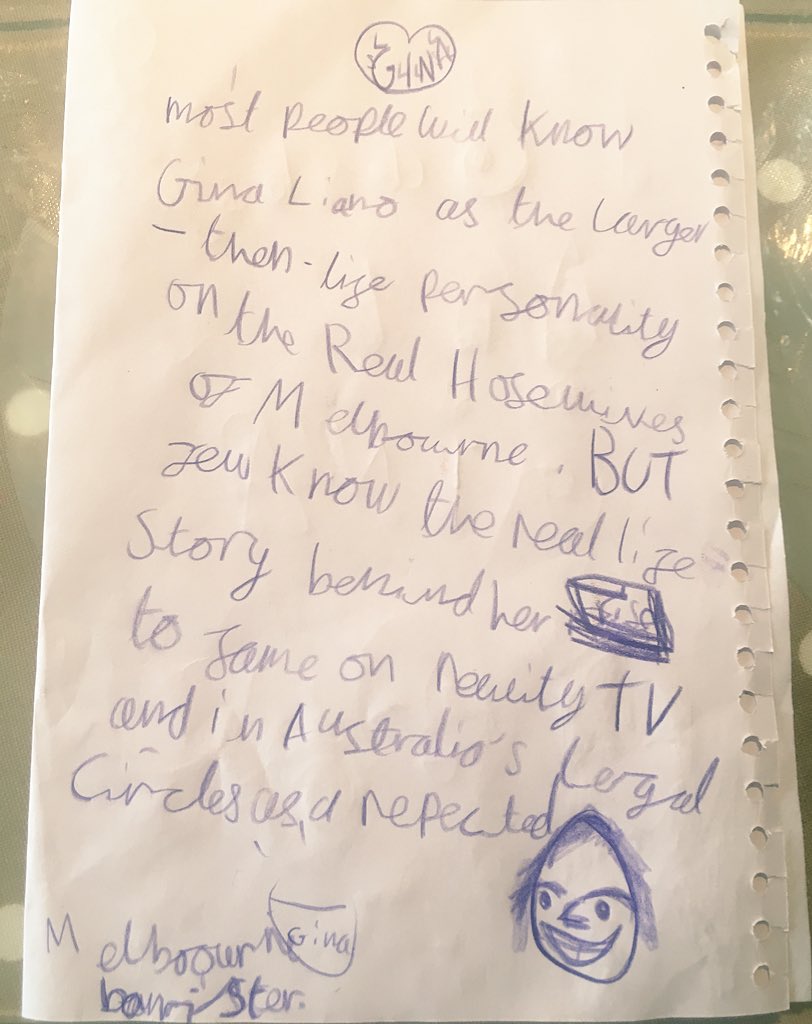 GINA
most people will know
Gina Liano as the larger
- then-life personality
on the Real Hosewives
of Melbourne. BUT
few know the real life
Story behind her
to fame on reality TV
and in Australia's Legal
Circles as a repected
Gina
Melboourn
barrister.